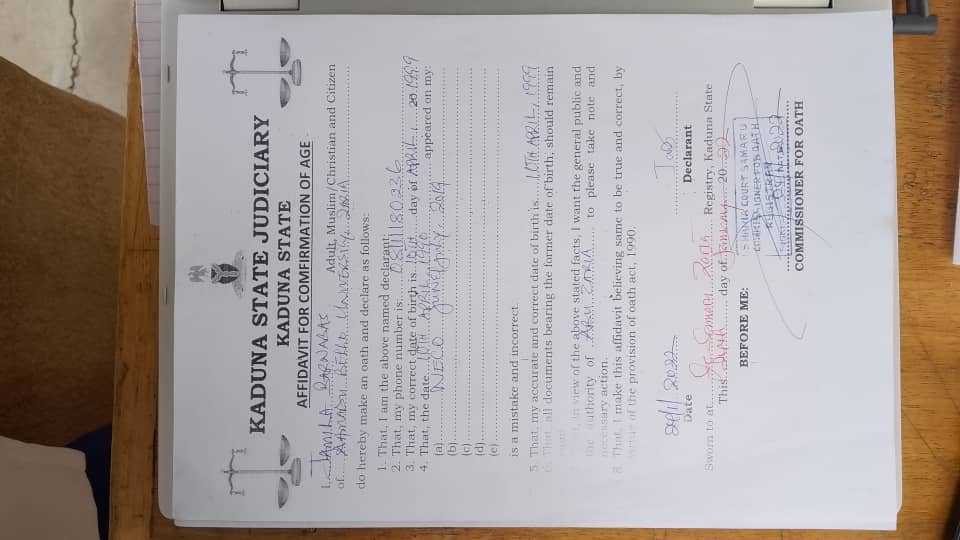 KADUNA STATE JUDICIARY
KADUNA STATE
AFFIDAVIT FOR COMFIRMATION OF AGE
I, JAMILA BARNABAS Adult, Muslim/Christian and Citizen
of AHMADU BELLO UNIVERSITY, ZARIA
do hereby make an oath and declare as follows:
1. That, I am the above named declarant;
2. That, my phone number is: 08111180226
3. That, my correct date of birth is 10th day of APRIL 20 1999
4. That, the date 10TH APRIL 1990 appeared on my:
(a) NECO JUNE/JULY 2019
(b)
(c)
(d)
(e)
is a mistake and incorrect.
5. That, my accurate and correct date of birth is 10TH APRIL, 1999
6. That, all documents bearing the former date of birth, should remain
7. That, in view of the above stated facts, I want the general public and
the authority of ABU ZARIA to please take note and
necessary action.
8. That, I make this affidavit believing same to be true and correct, by
virtue of the provision of oath act, 1990.
/1/2022
Date
Declarant
Sworn to at Zaria Registry, Kaduna State
This day of January 20 22
BEFORE ME:
COURT SAMARU
COMMISSIONER FOR OATH
COMMISSIONER FOR OATH